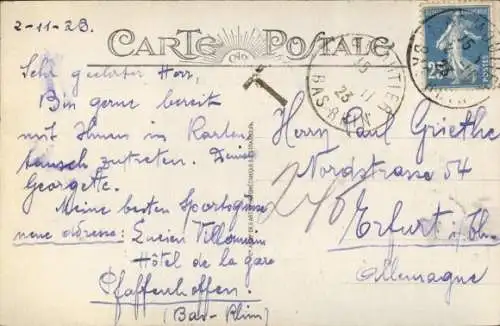 2-11-23.
CARTE POSTALE
Sehr geehrter Herr,
Bin gerne bereit
mit Ihnen in Karten
tausch zutreten.
Georgette.
Meine besten Sportsgrüsse
neue adresse: Lucien Villemain
Hôtel de la gare
Pfaffenhoffen.
(Bas-Rhin)
T
BAS-RHIN
15
11
23
25
POSTES
Herrn Paul Griethe
Nordstrasse 54
Erfurt i/Th.
Allemagne